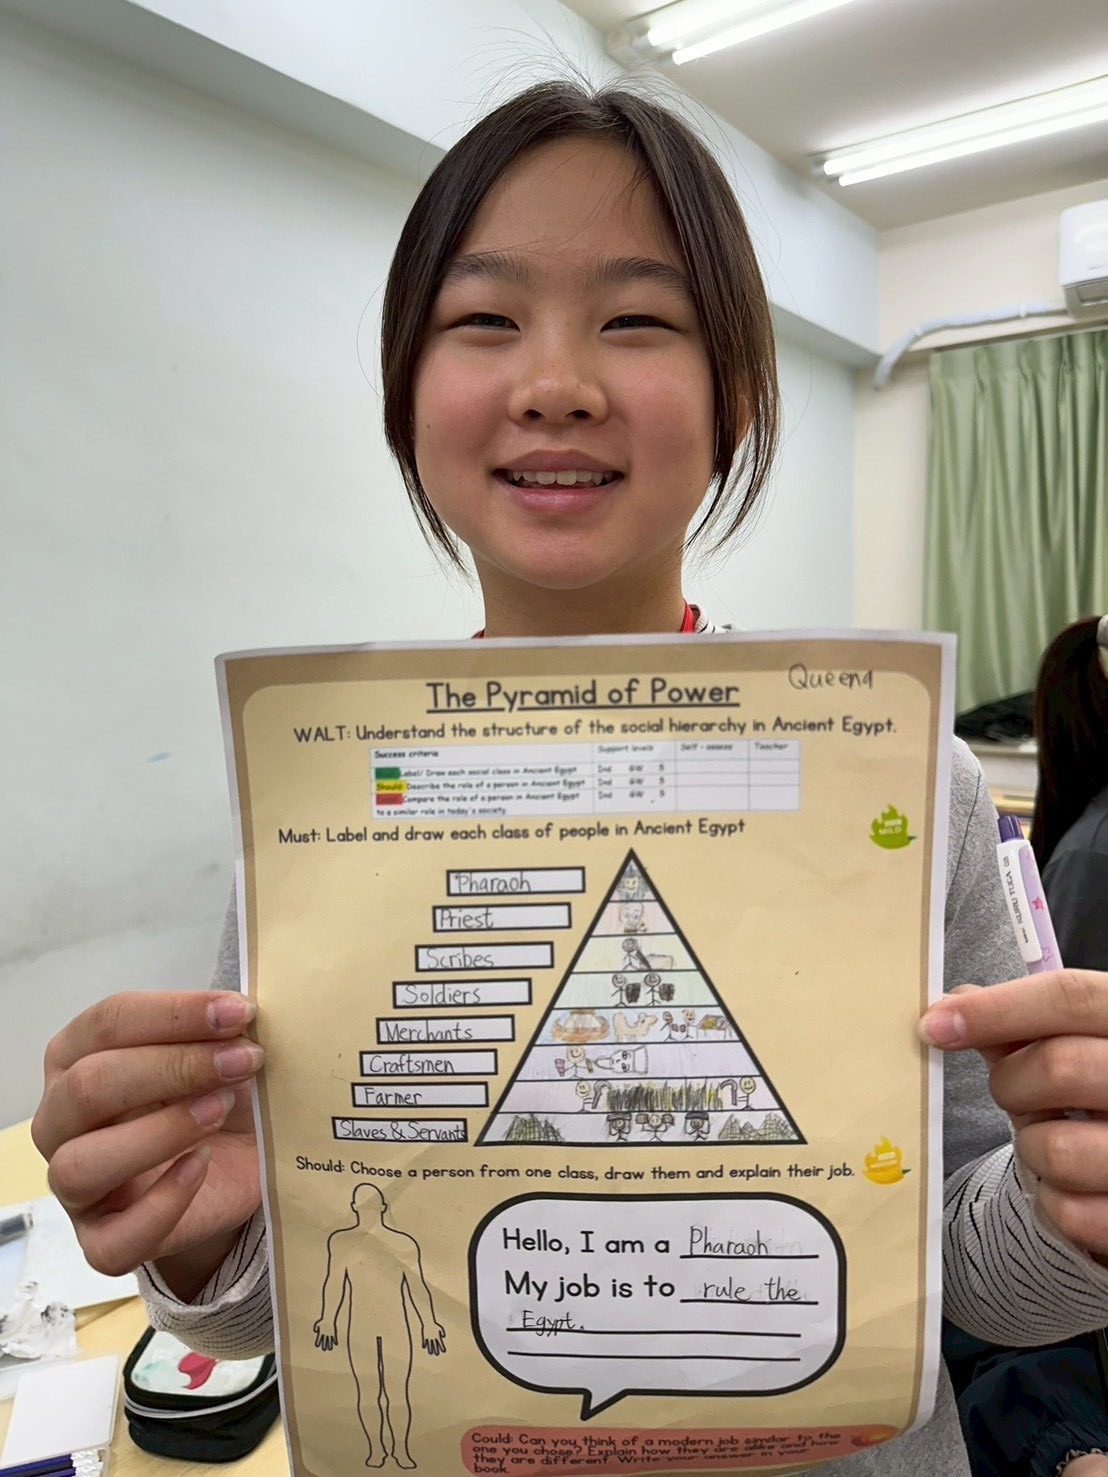 Queena
The Pyramid of Power
WALT: Understand the structure of the social hierarchy in Ancient Egypt.
Success criteria Support levels Self - assess Teacher
Label/ Draw each social class in Ancient Egypt Ind GW S
Should: Describe the role of a person in Ancient Egypt Ind GW S
Compare the role of a person in Ancient Egypt Ind GW S
to a similar role in today's society.
Must: Label and draw each class of people in Ancient Egypt
MILD
Pharaoh
Priest
Scribes
Soldiers
Merchants
Craftsmen
Farmer
Slaves & Servants
Should: Choose a person from one class, draw them and explain their job.
Hello, I am a Pharaoh
My job is to rule the
Egypt.
Could: Can you think of a modern job similar to the
one you chose? Explain how they are alike and how
they are different. Write your answer in your
book.
KURU TOGA